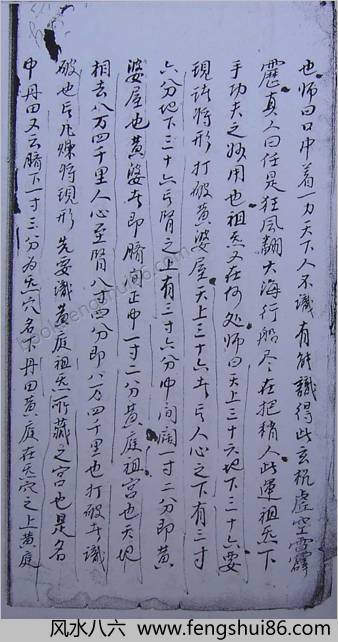 也师曰口中着一力天下人不識有能識得此玄机虚空霹
靂真人曰任是狂風翻大海行船尽在把稍人此運祖炁下
手功夫之妙用也祖炁又在何处师曰天上三十六地下三十六要
現將形打破黄婆屋天上三十六者人心之下有三寸
六分地下三十六腎之上有三寸六分中间一寸二分即黄
婆屋也黄婆者即臍间正中一寸二分黄庭祖宫也天地
相去八万四千里人心至腎八寸四分即八万四千里也打破者識
破也凡煉將現形先要識黄庭祖炁所藏之宫也是名
中丹田又云臍下一寸三分为炁穴名下丹田黄庭在炁穴之上黄庭
www.fengshui86.com
风水八六 www.fengshui86.com